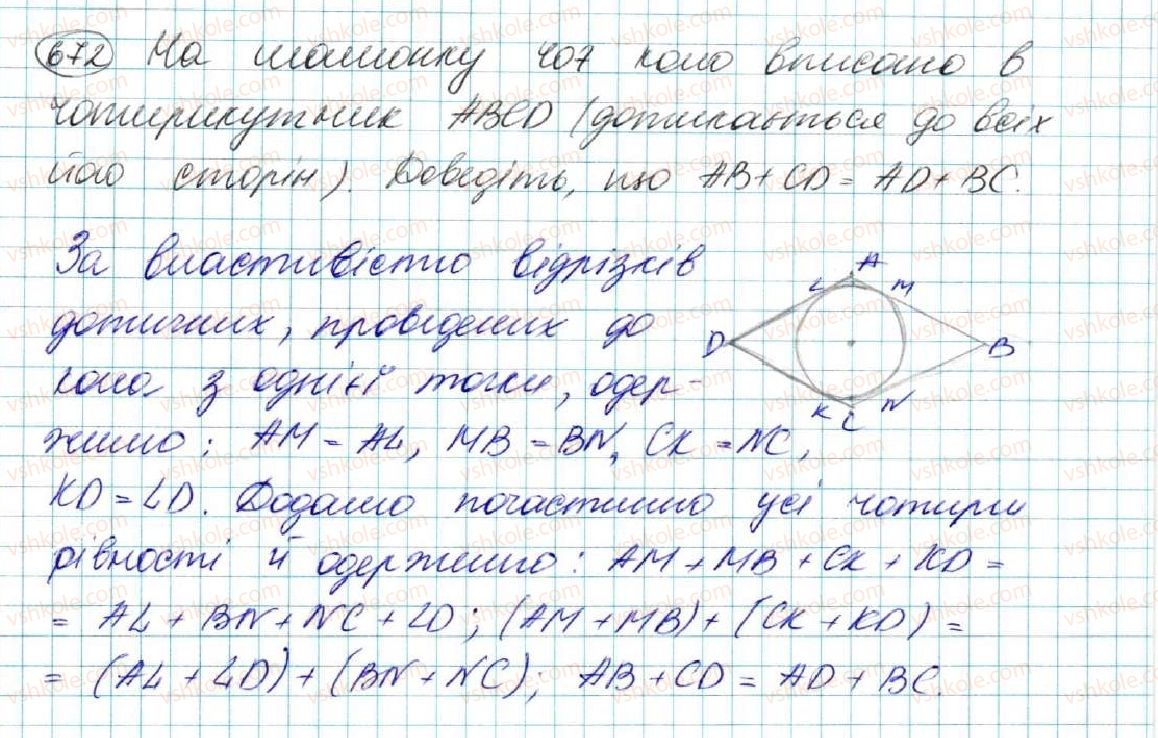 672 На малюнку 407 коло вписано в
чотирикутник ABCD (дотикається до всіх
його сторін). Доведіть, що AB + CD = AD + BC.
За властивістю відрізків
дотичних, проведених до
кола з однієї точки, одер-
жимо: AM = AL, MB = BN, CK = NC,
KD = LD. Додамо почастинно усі чотири
рівності й одержимо: AM + MB + CK + KD =
= AL + BN + NC + LD; (AM + MB) + (CK + KD) =
= (AL + LD) + (BN + NC); AB + CD = AD + BC.
A
L M
D B
K C N
vshkole.com